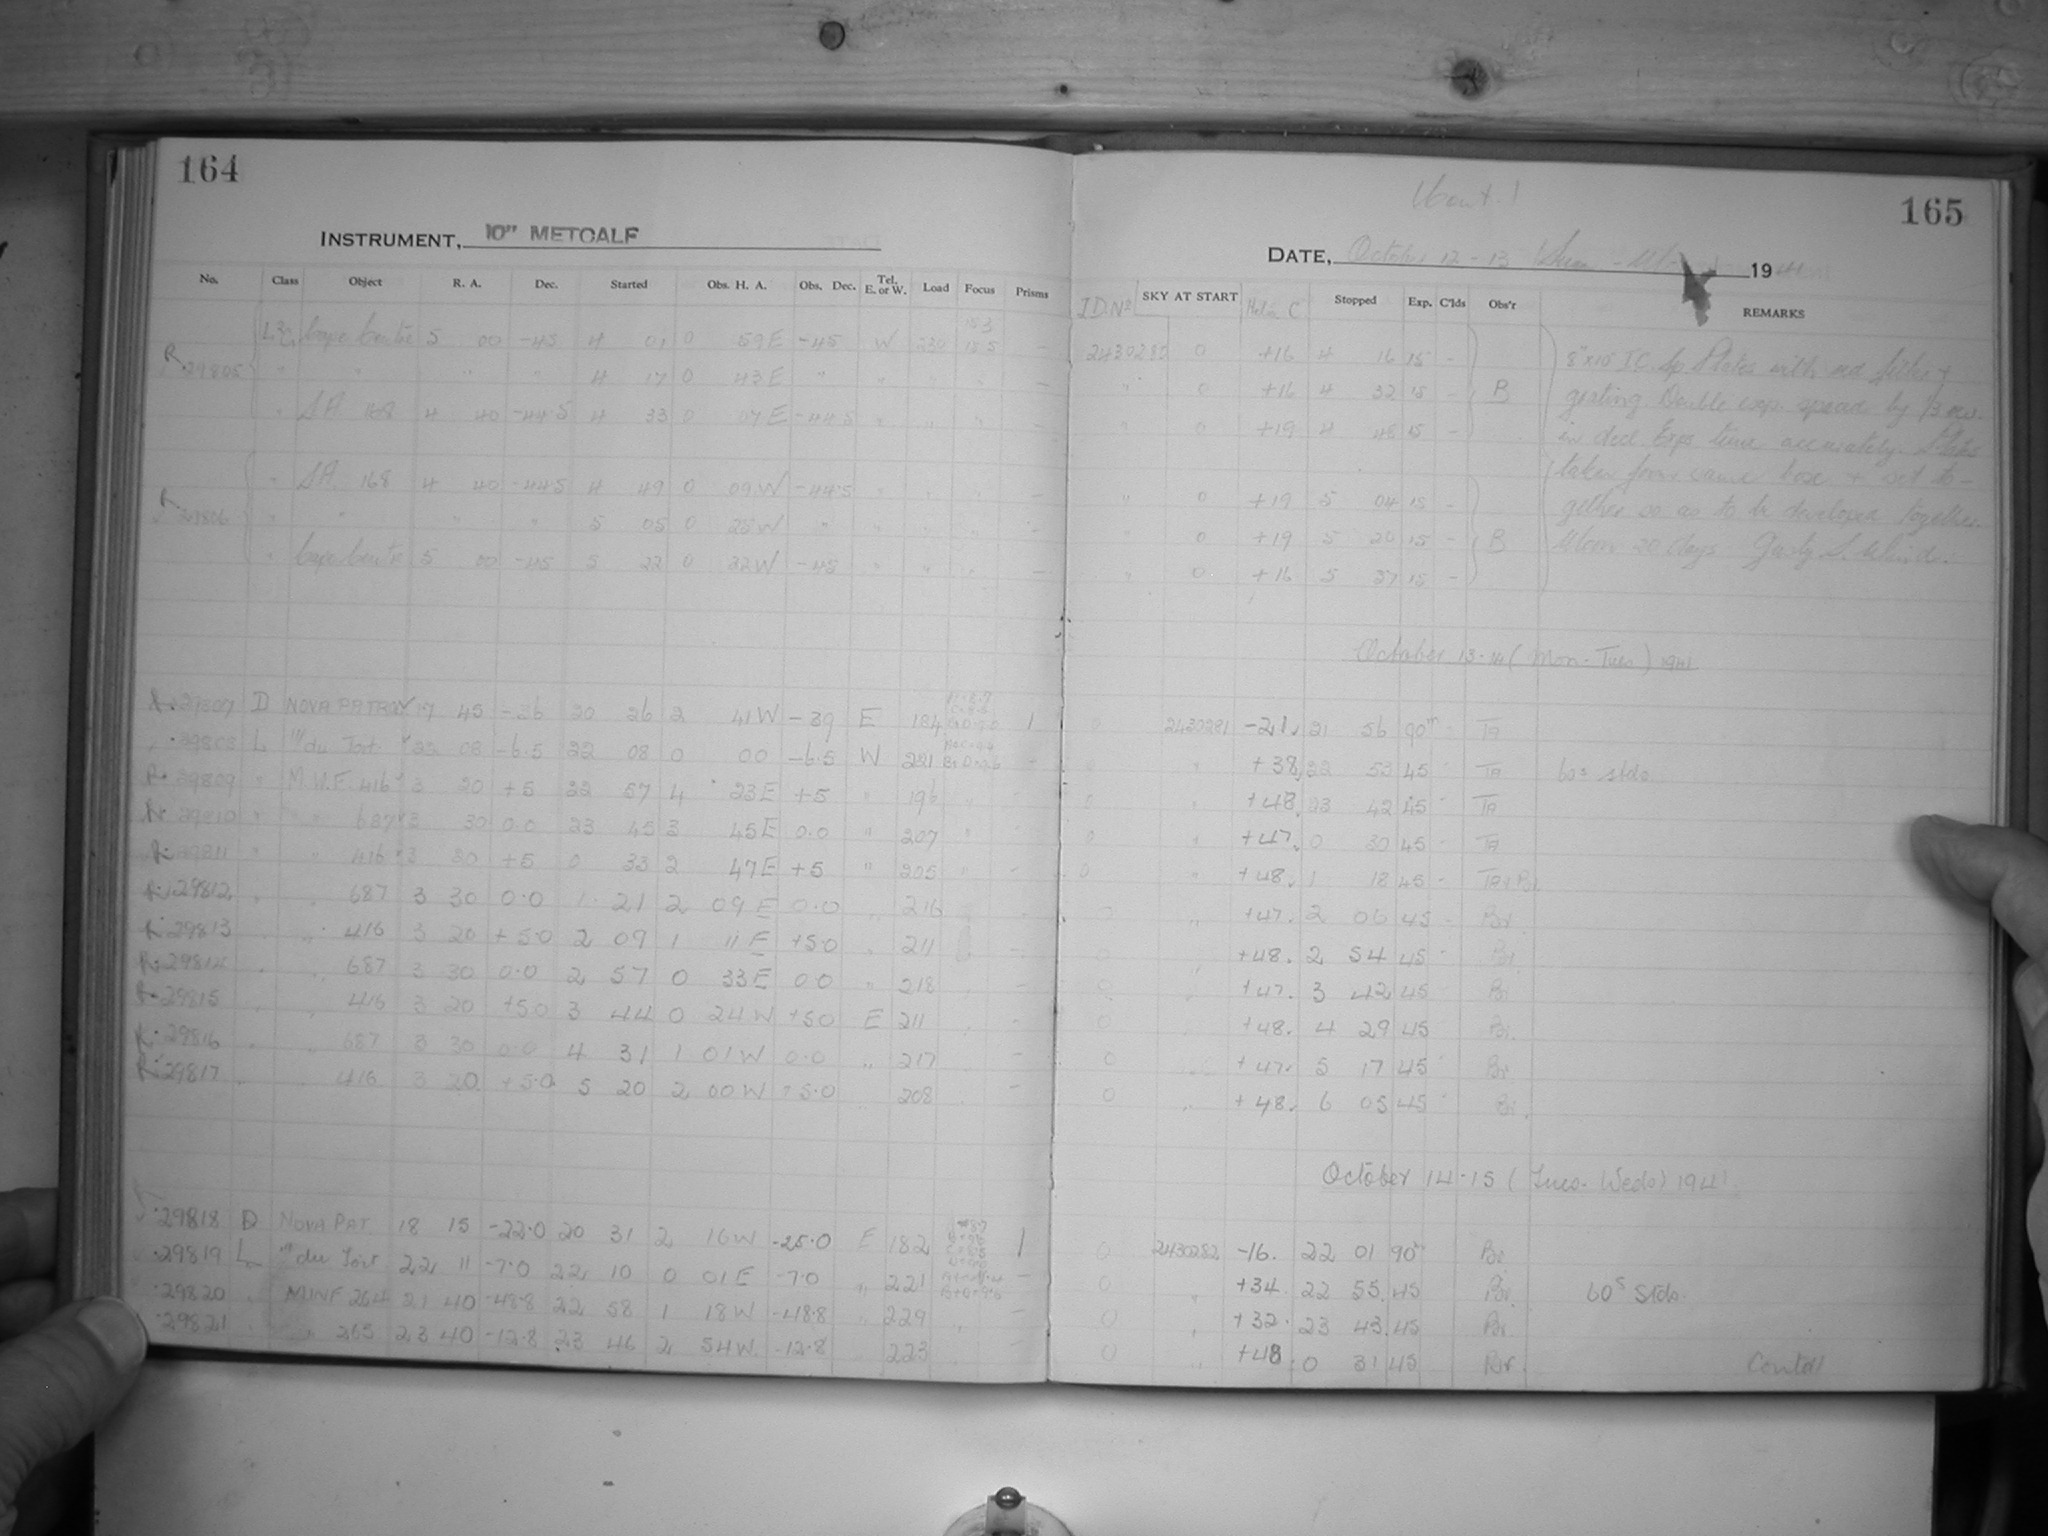 164
INSTRUMENT, 10" METCALF
No. Class Object R. A. Dec. Started Obs. H. A. Obs. Dec. Tel. E. or W. Load Focus Prisms
Cape Centre 5 00 -45 4 01 0 59E -45 W 230 15.5 -
R. 29805 " " " " 4 17 0 43E " " -
" SA 168 4 40 -44.5 4 33 0 07E -44.5 " " " -
" SA 168 4 40 -44.5 4 49 0 09W -44.5 " " " -
" " " " 5 05 0 25W " " " " -
" Cape Centre 5 00 -45 5 22 0 32W -45 " " " -
R. 29807 D NOVA PATROL 17 45 -36 20 26 2 41W -39 E 184 1
29808 L du Toit 22 08 -6.5 22 08 0 00 -6.5 W 221 -
R. 29809 " M.W.F. 416 3 20 +5 22 57 4 23E +5 " 196 " -
R. 29810 " " 687 3 30 0.0 23 45 3 45E 0.0 " 207 " -
R. 29811 " " 416 3 20 +5 0 33 2 47E +5 " 205 " -
R. 29812 " " 687 3 30 0.0 1 21 2 09E 0.0 " 216 -
R. 29813 " " 416 3 20 +5.0 2 09 1 11E +5.0 " 211 -
R. 29814 " " 687 3 30 0.0 2 57 0 33E 0.0 " 218 -
R. 29815 " " 416 3 20 +5.0 3 44 0 24W +5.0 E 211 -
R. 29816 " " 687 3 30 0.0 4 31 1 01W 0.0 " 217 -
R. 29817 " " 416 3 20 +5.0 5 20 2 00W +5.0 208 -
29818 D NOVA PAT. 18 15 -22.0 20 31 2 16W -25.0 E 182 1
29819 L du Toit 22 11 -7.0 22 10 0 01E -7.0 " 221 -
29820 " MINF 264 21 40 -48.8 22 58 1 18W -48.8 " 229 " -
29821 " 265 23 40 -12.8 23 46 2 54W -12.8 223 -
165
DATE, October 12-13 19
I.D. No SKY AT START C Stopped Exp. C'lds Obs'r REMARKS
2430280 0 +16 4 16 15 - 8"x10" I C. Sp. Plates with red filter &
" 0 +16 4 32 15 - B grating. Double exp. spread by
" 0 +19 4 48 15 - in decl. Exps time accurately. Plates
taken from same box & set to-
" 0 +19 5 04 15 - gether so as to be developed together.
" 0 +19 5 20 15 - B Moon 20 days. Gusty S. Wind.
" 0 +16 5 37 15 -
October 13-14 (Mon-Tues) 1941
0 2430281 -21. 21 56 90m TA
0 " +38. 22 53 45 TA 60s stds
0 " +48. 23 42 45 TA
0 " +47. 0 30 45 TA
0 " +48. 1 18 45 - TA & Br.
0 " +47. 2 06 45 - Br.
0 " +48. 2 54 45 Br.
0 " +47. 3 42 45 Br.
0 " +48. 4 29 45 Br.
0 " +47. 5 17 45 Br.
0 " +48. 6 05 45 Br.
October 14-15 (Tues-Weds) 1941.
0 2430282 -16. 22 01 90m Br.
0 " +34. 22 55 45 Br. 60s stds.
0 " +32. 23 43 45 Br.
0 " +48. 0 31 45 Br. Contd